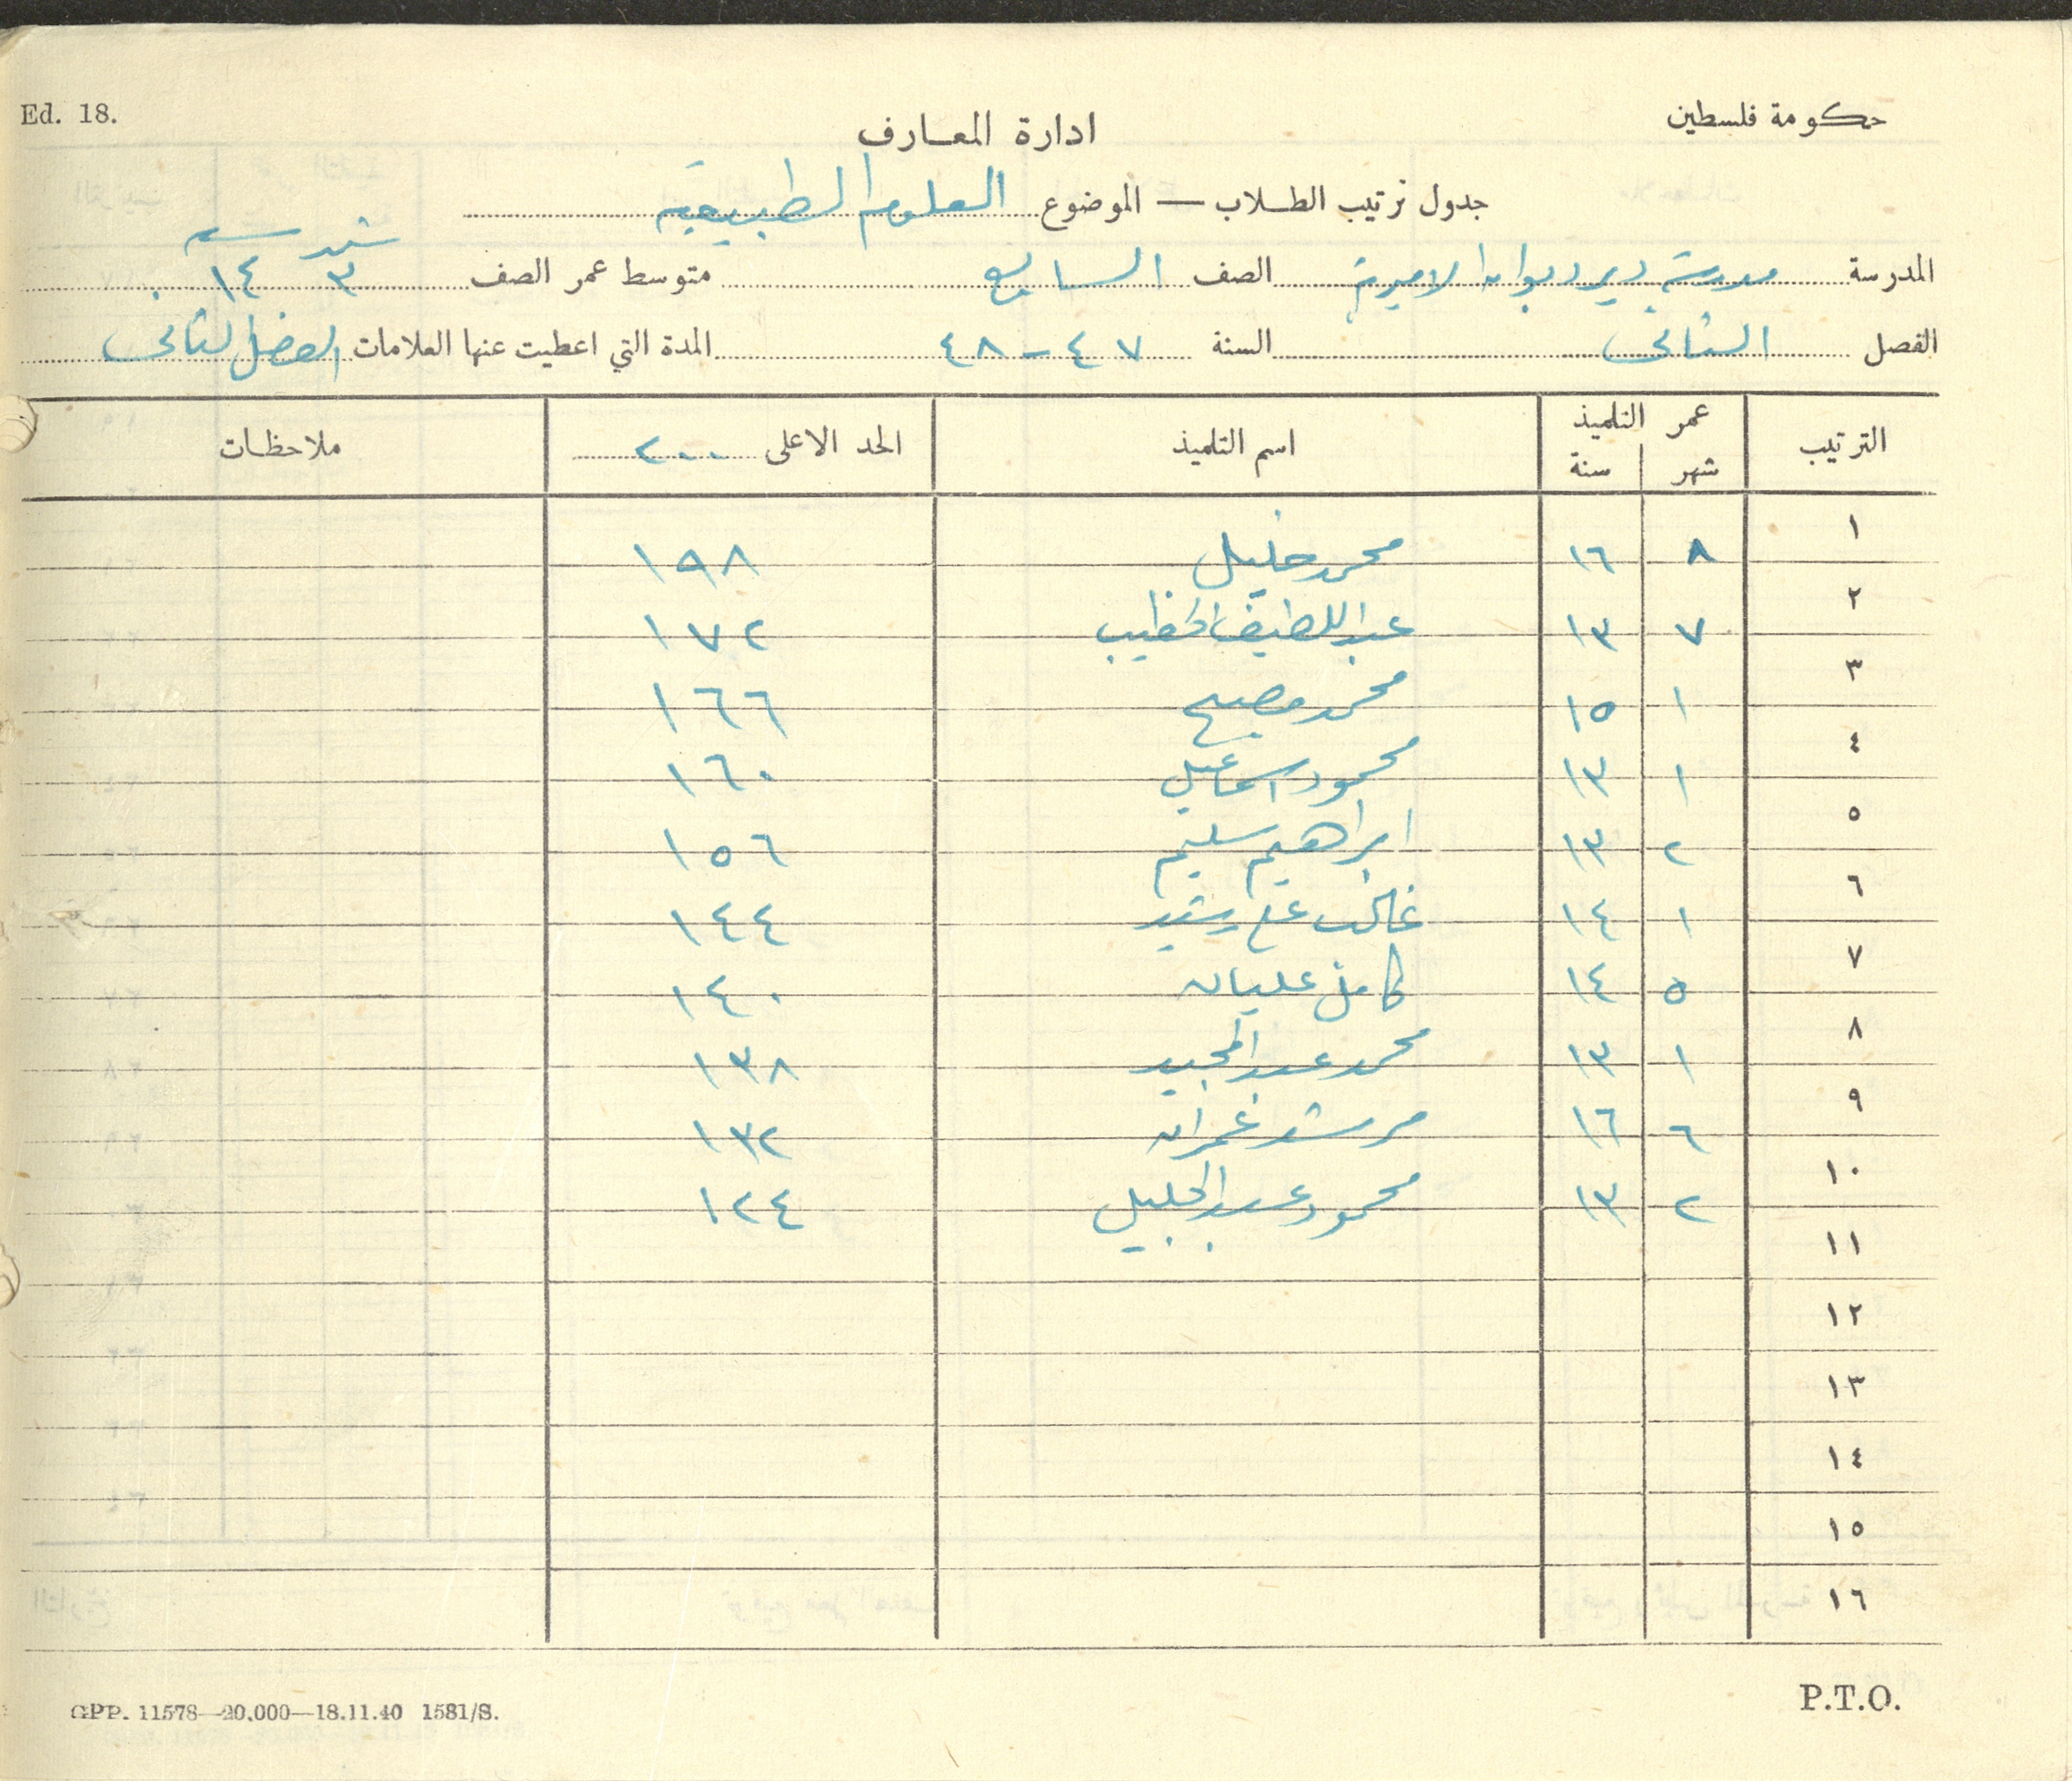 Ed. 18.
حكومة فلسطين
ادارة المعارف
جدول ترتيب الطلاب — الموضوع العلوم الطبيعية
شهر سنه
المدرسة مدرسة دير ديوان الاميرية الصف السابع متوسط عمر الصف ٣ ١٤
الفصل الثاني السنة ٤٧ - ٤٨ المدة التي اعطيت عنها العلامات الفصل الثاني
الترتيب عمر التلميذ اسم التلميذ الحد الاعلى ٢٠٠ ملاحظات
شهر سنة
١ ٨ ١٦ محمد خليل ١٩٨
٢ ٧ ١٣ عبد اللطيف الخطيب ١٧٢
٣ ١ ١٥ محمد مصبح ١٦٦
٤ ١ ١٣ محمود اسماعيل ١٦٠
٥ ٢ ١٣ ابراهيم سليم ١٥٦
٦ ١ ١٤ غالب علي رشيد ١٤٤
٧ ٥ ١٤ كامل عليان ١٤٠
٨ ١ ١٣ محمد عبد المجيد ١٣٨
٩ ٦ ١٦ مرشد عمران ١٣٢
١٠ ٢ ١٣ محمود عبد الجليل ١٢٤
١١
١٢
١٣
١٤
١٥
١٦
GPP. 11578—20.000—18.11.40 1581/S.
P.T.O.